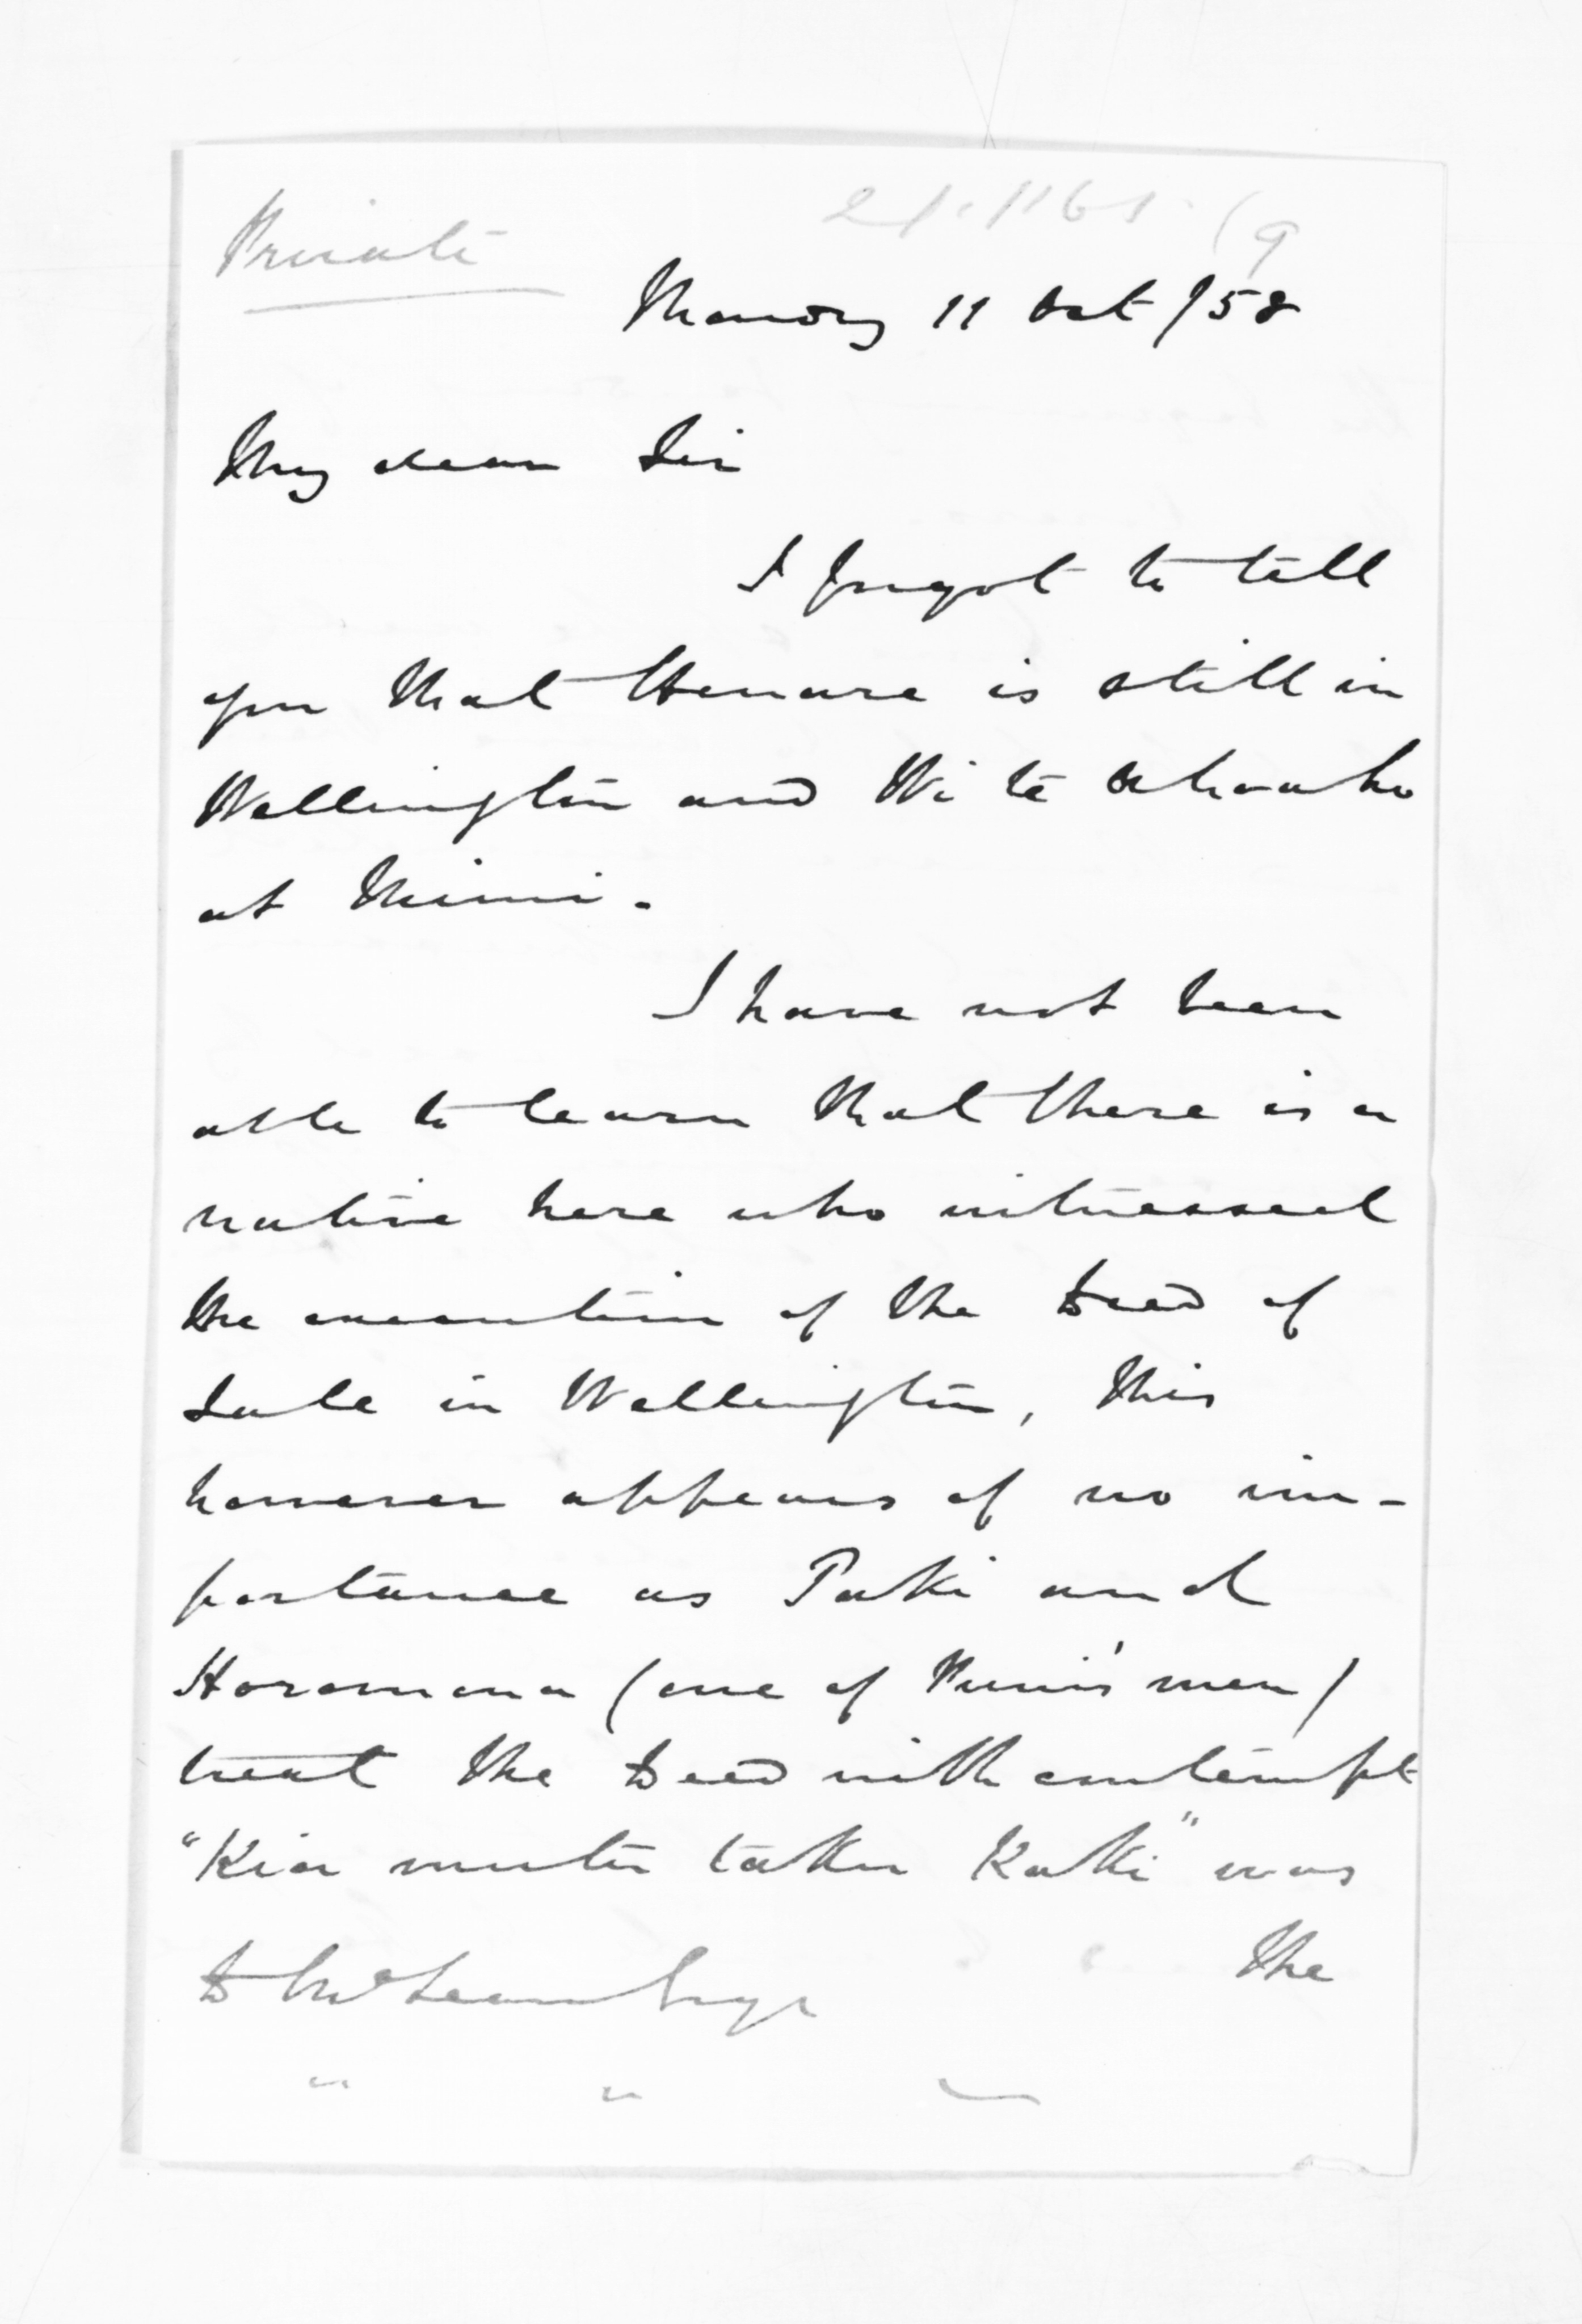 Private
Monday 11 Oct /58
My dear Sir
I forgot to tell
you that Henare is still in
Wellington and Wi te
at Mimi.
I have not been
able to learn that there is a
native here who witnessed
the execution of the Deed of
Sale in Wellington, this
however appears of no im-
portance as Taki and
Horomona (one of Puni's men)
treat the Deed with contempt
"Kia mutu taku Kaki" was
the
D McLean Esqr
" "